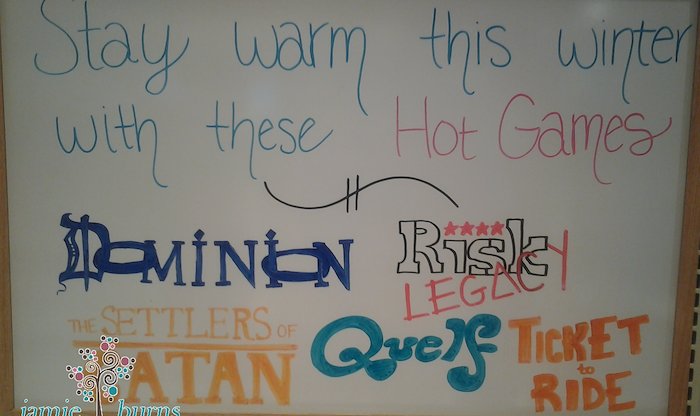 Stay warm this winter
with these Hot Games
DOMINION
Risk
LEGACY
THE SETTLERS OF
CATAN
Quelf
TICKET
to
RIDE
jamie burns